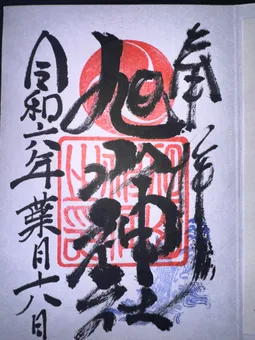 奉拝
旭川神社
令和六年葉月十八日